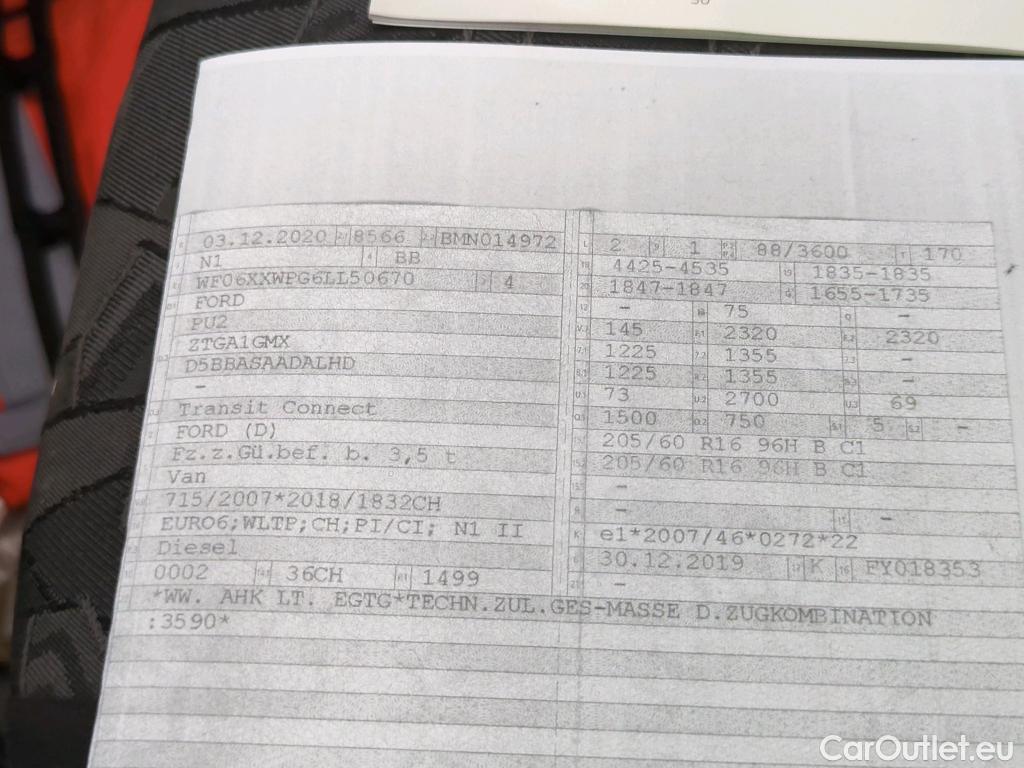 30
03.12.2020 8566 BMN014972
N1 BB
WF06XXWPG6LL50670 4
FORD
PU2
ZTGA1GMX
D5BBASAADALHD
–
Transit Connect
FORD (D)
Fz.z.Gü.bef. b. 3,5 t
Van
715/2007*2018/1832CH
EURO6;WLTP;CH;PI/CI; N1 II
Diesel
0002 36CH 1499
L 2 9 1 88/3600 T 170
18 4425-4535 19 1835-1835
20 1847-1847 G 1655-1735
12 – 13 75 Q –
V.7 145 F.1 2320 F.2 2320
7.1 1225 7.2 1355 7.3 –
8.1 1225 8.2 1355 8.3 –
U.1 73 U.2 2700 U.3 69
O.1 1500 O.2 750 S.1 5 S.2 –
15.1 205/60 R16 96H B C1
15.2 205/60 R16 96H B C1
15.3 –
R – 11 –
K e1*2007/46*0272*22
6 30.12.2019 17 K 16 FY018353
21 –
*WW. AHK LT. EGTG*TECHN.ZUL.GES-MASSE D.ZUGKOMBINATION
:3590*
CarOutlet.eu